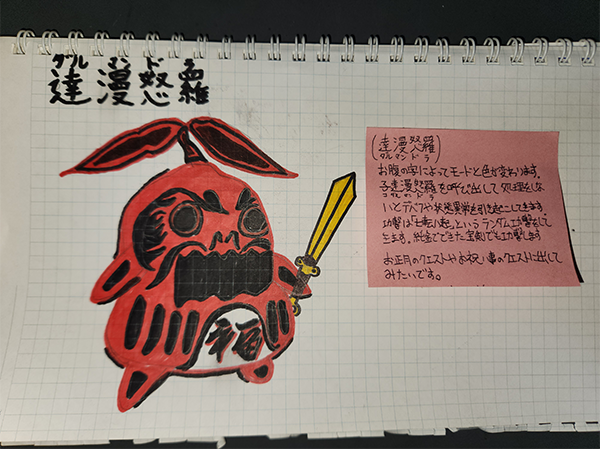 ダル マン ド ラ
達漫怒羅
福
(達漫怒羅)
ダル マン ド ラ
お腹の字によってモードと色が変わります。
子達漫怒羅を呼び出して処理をしな
コダルマンドラ
いとデバフや状態異常を引き起こしてきます
攻撃は七転八起というランダム攻撃をして
きます。純金でできた宝剣でも攻撃します
お正月のクエストやお祝い事のクエストに出して
みたいです。